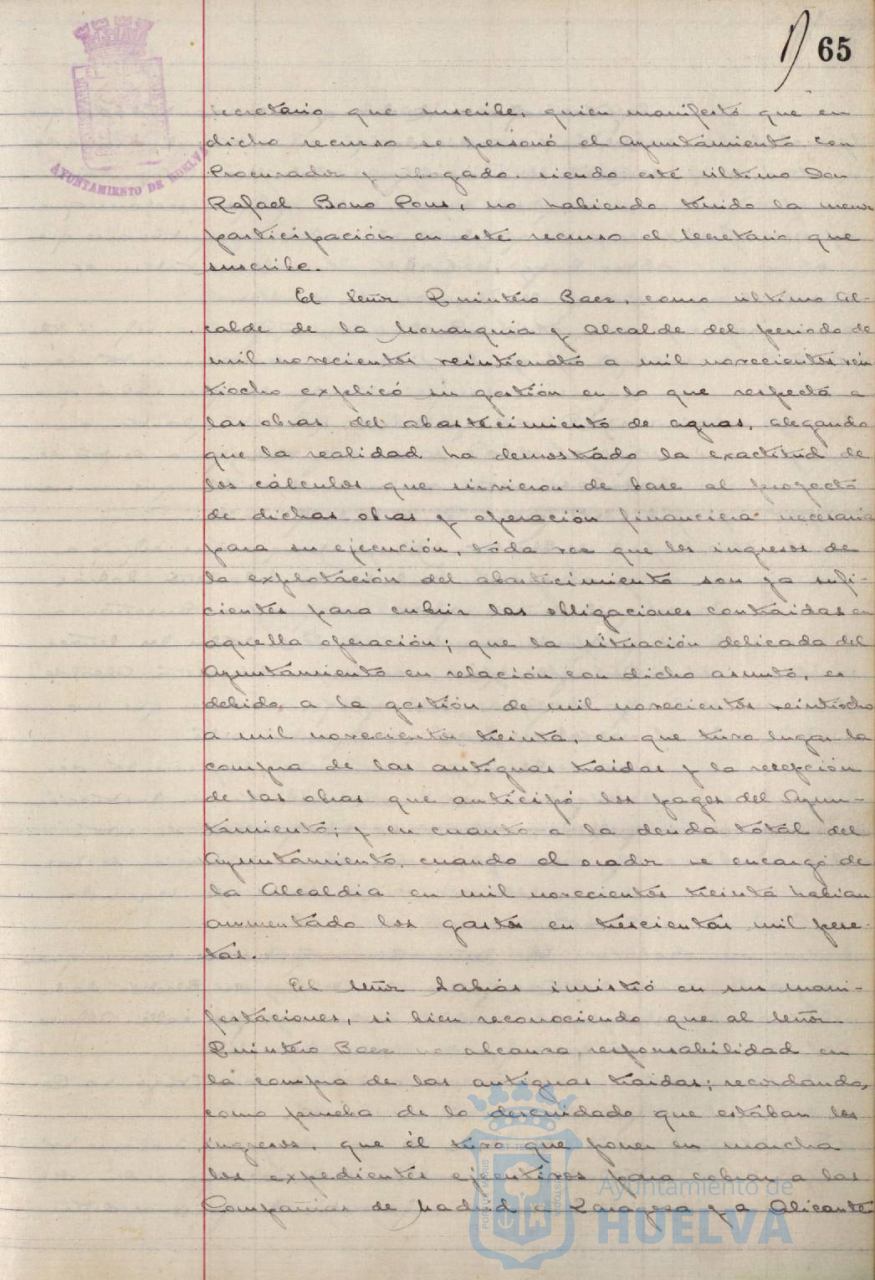 65
AYUNTAMIENTO DE HUELVA
secretario que suscribe, quien manifestó que en
dicho recurso se personó el Ayuntamiento con
Procurador y abogado, siendo este último Don
Rafael Bono Pons, no habiendo tenido la menor
participación en este recurso el Secretario que
suscribe.
El Señor Quintero Baez, como último Al-
calde de la Monarquia y Alcalde del periodo de
mil novecientos veinticuatro a mil novecientos vein
tiocho explicó su gestión en lo que respecta a
las obras del abastecimiento de aguas, alegando
que la realidad ha demostrado la exactitud de
los cálculos que sirvieron de base al proyecto
de dichas obras y operación financiera necesaria
para su ejecución, toda vez que los ingresos de
la explotación del abastecimiento son ya sufi-
cientes para cubrir las obligaciones contraidas en
aquella operación; que la situación delicada del
Ayuntamiento en relación con dicho asunto, es
debida a la gestión de mil novecientos veintiocho
a mil novecientos treinta, en que tuvo lugar la
compra de las antiguas traidas y la recepción
de las obras que anticipó los pagos del Ayun-
tamiento; y en cuanto a la deuda total del
Ayuntamiento, cuando el orador se encargó de
la Alcaldia en mil novecientos treinta habian
aumentado los gastos en trescientas mil pese-
tas.
El Señor Sabiós insistió en sus mani-
festaciones, si bien reconociendo que al Señor
Quintero Baez no alcanza responsabilidad en
la compra de las antiguas traidas; recordando,
como prueba de lo descuidado que estaban los
ingresos, que él tuvo que poner en marcha
los expedientes ejecutivos para cobrar a las
Compañias de Madrid a Zaragoza y a Alicante
Ayuntamiento de
HUELVA